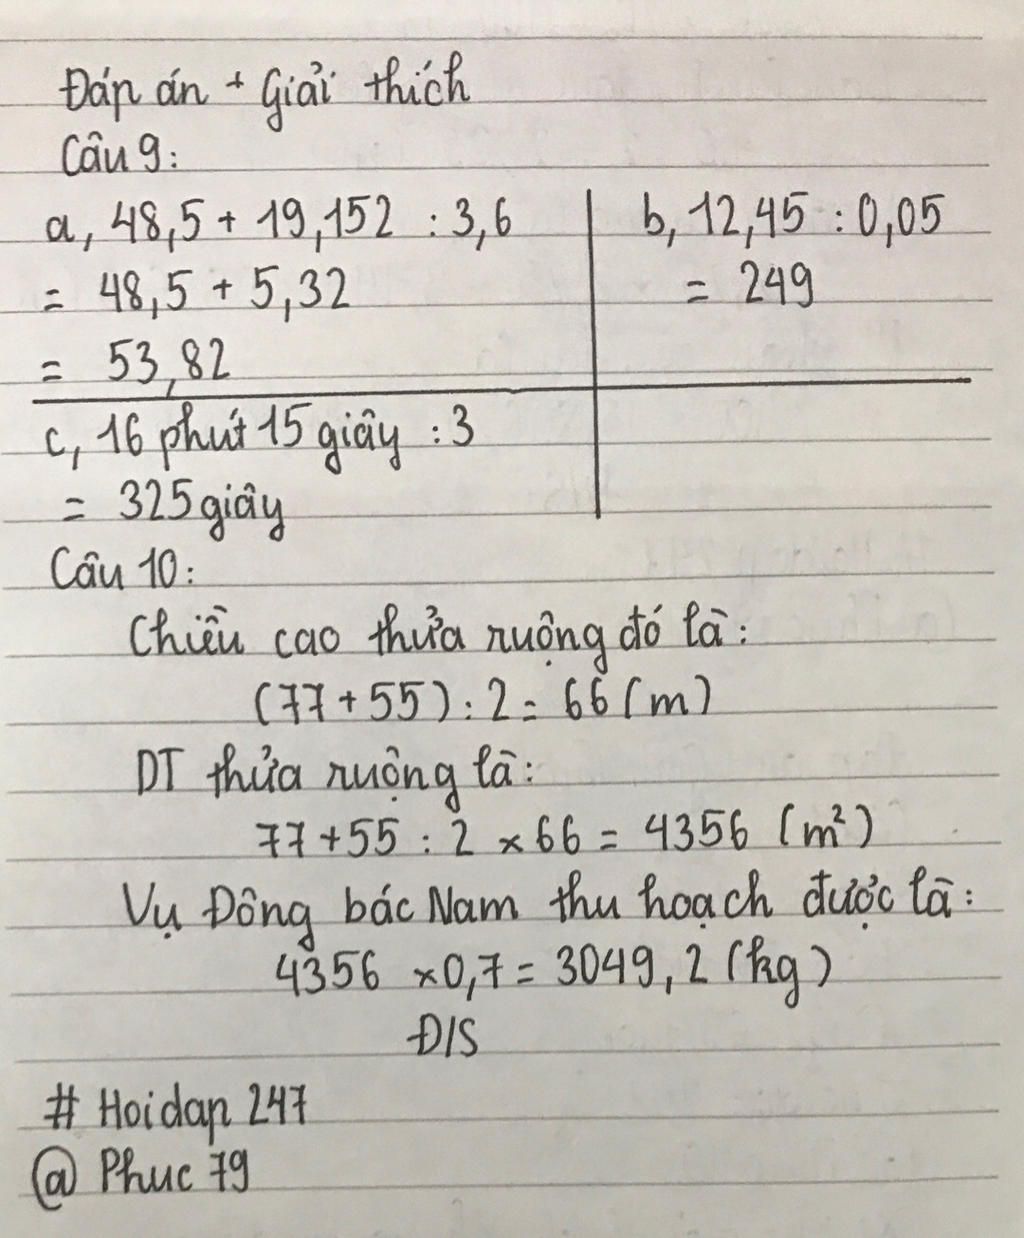 Đáp án + Giải thích
Câu 9:
a, 48,5 + 19,152 : 3,6
= 48,5 + 5,32
= 53,82
b, 12,45 : 0,05
= 249
c, 16 phút 15 giây : 3
= 325 giây
Câu 10:
Chiều cao thửa ruộng đó là:
(77 + 55) : 2 = 66 (m)
DT thửa ruộng là:
77 + 55 : 2 × 66 = 4356 (m²)
Vụ Đông bác Nam thu hoạch được là:
4356 × 0,7 = 3049,2 (kg)
Đ/S
# Hoidap 247
@ Phuc 79